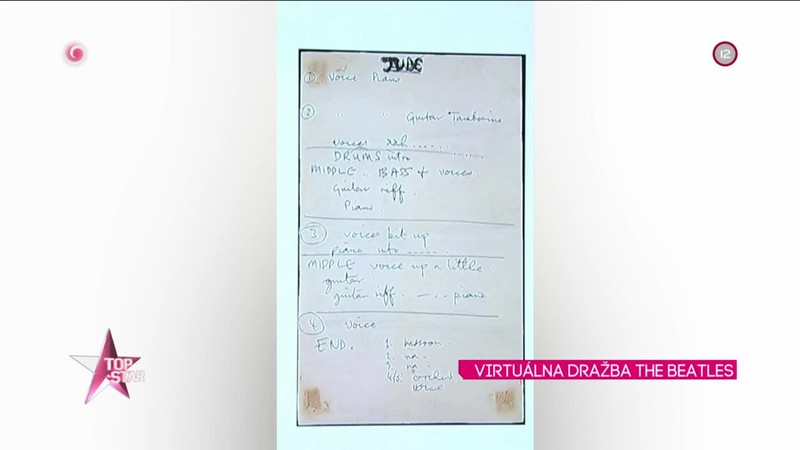 12
JUDE
① Voice Piano
② " " Guitar Tambourine
voices aah......
DRUMS intro..........
MIDDLE. BASS & voices.
Guitar riff.
Piano.
③ voices bit up
piano into.........
MIDDLE voice up a little
guitar
guitar riff. —.. piano
④ Voice
END. 1. bassoon.
2. na.
3. na.
TOP
STAR
VIRTUÁLNA DRAŽBA THE BEATLES